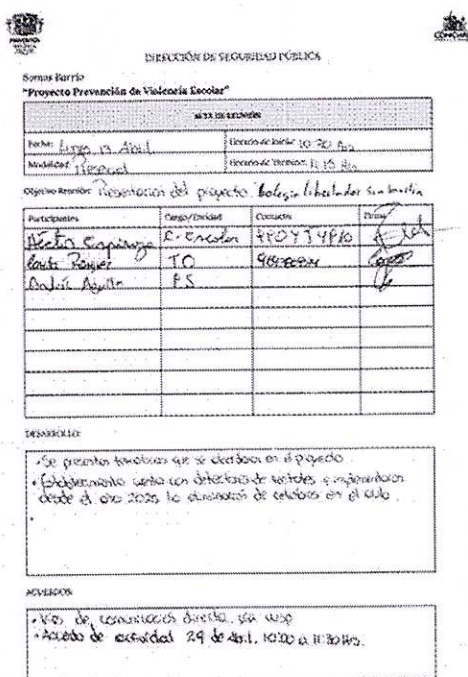 CONCHALÍ
DIRECCIÓN DE SEGURIDAD PÚBLICA
Somos Barrio
"Proyecto Prevención de Violencia Escolar"
ACTA DE REUNIÓN
Fecha: Lunes 13 Abril Horario de Inicio: 10:30 hrs
Modalidad: Presencial Horario de Término: 11:15 hrs
Objetivo Reunión: Presentación del proyecto. Colegio Libertador San Martín
Participantes Cargo/Entidad Contacto Firma
Héctor Espinoza E. Escolar
T.O
P.S
DESARROLLO:
• Se presentan temáticas que se abordaran en el proyecto
• Establecimiento cuenta con detectores de metales e implementaron
desde el año 2025 la eliminación de celulares en el aula.
•
ACUERDOS
• Vías de comunicación directa vía wsp
• Acuerdo de actividad 29 de Abril, 10:00 a 11:30 hrs.